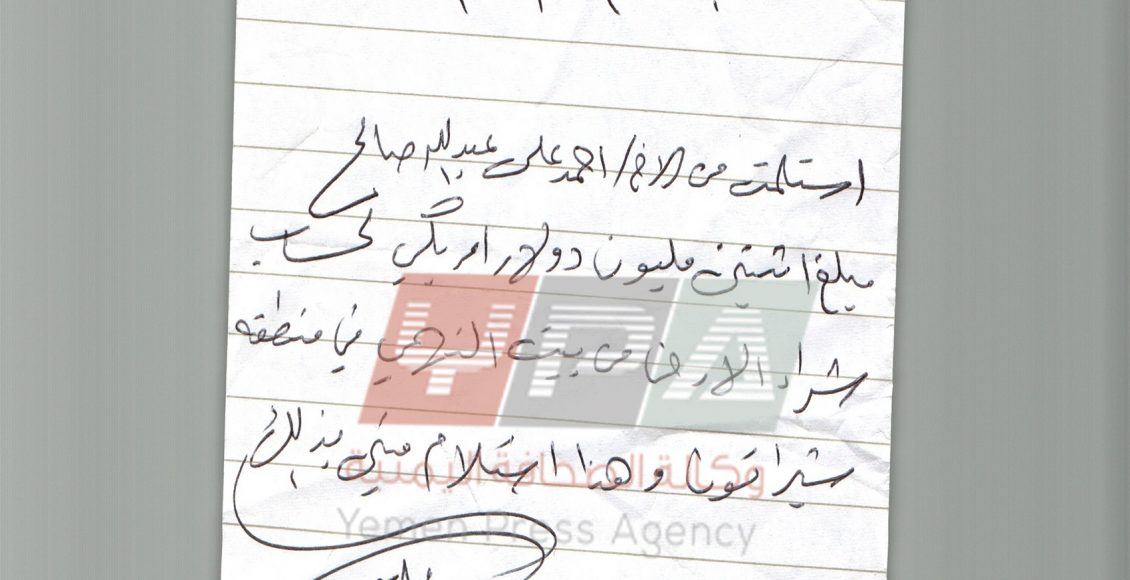 استلمت من الاخ/ احمد علي عبدالله صالح
مبلغ اثنين مليون دولار امريكي لحساب
شراء الارض من بيت النهمي في منطقه
شيراتون وهذا استلام مني بذالك
YPA
وكالة الصحافة اليمنية
Yemen Press Agency